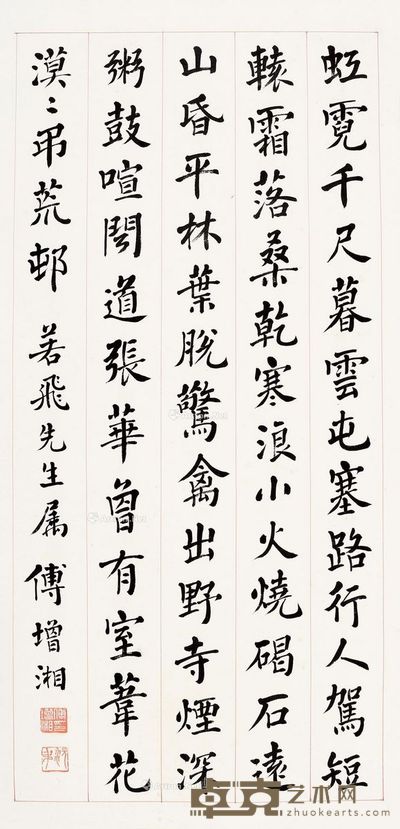 虹霓千尺暮雲屯塞路行人駕短
轅霜落桑乾寒浪小火燒碣石遠
山昏平林葉脫驚禽出野寺煙深
粥鼓喧聞道張華曾有室葦花
漠〻吊荒邨 若飛先生属 傅增湘
卓克艺术网
www.zhuokearts.com